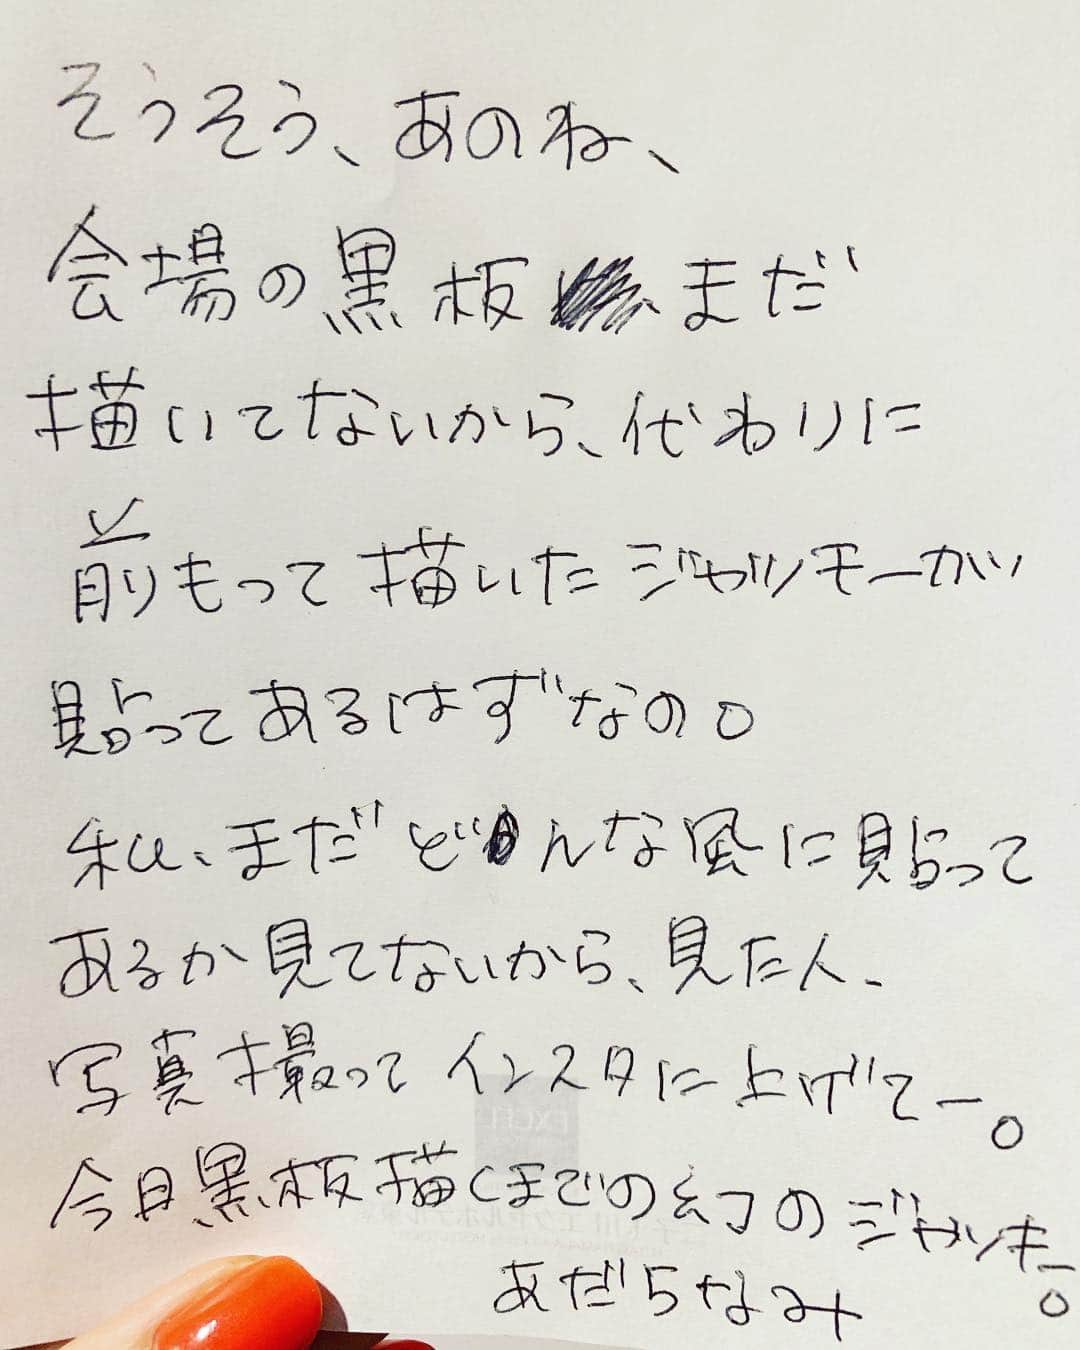 そうそう、あのね、
会場の黒板 まだ
描いてないから、代わりに
前もって描いたジャッキーが
貼ってあるはずなの。
私、まだどんな風に貼って
あるか見てないから、見た人、
写真撮ってインスタに上げてー。
今日黒板描くまでの幻のジャッキー。
あだちなみ